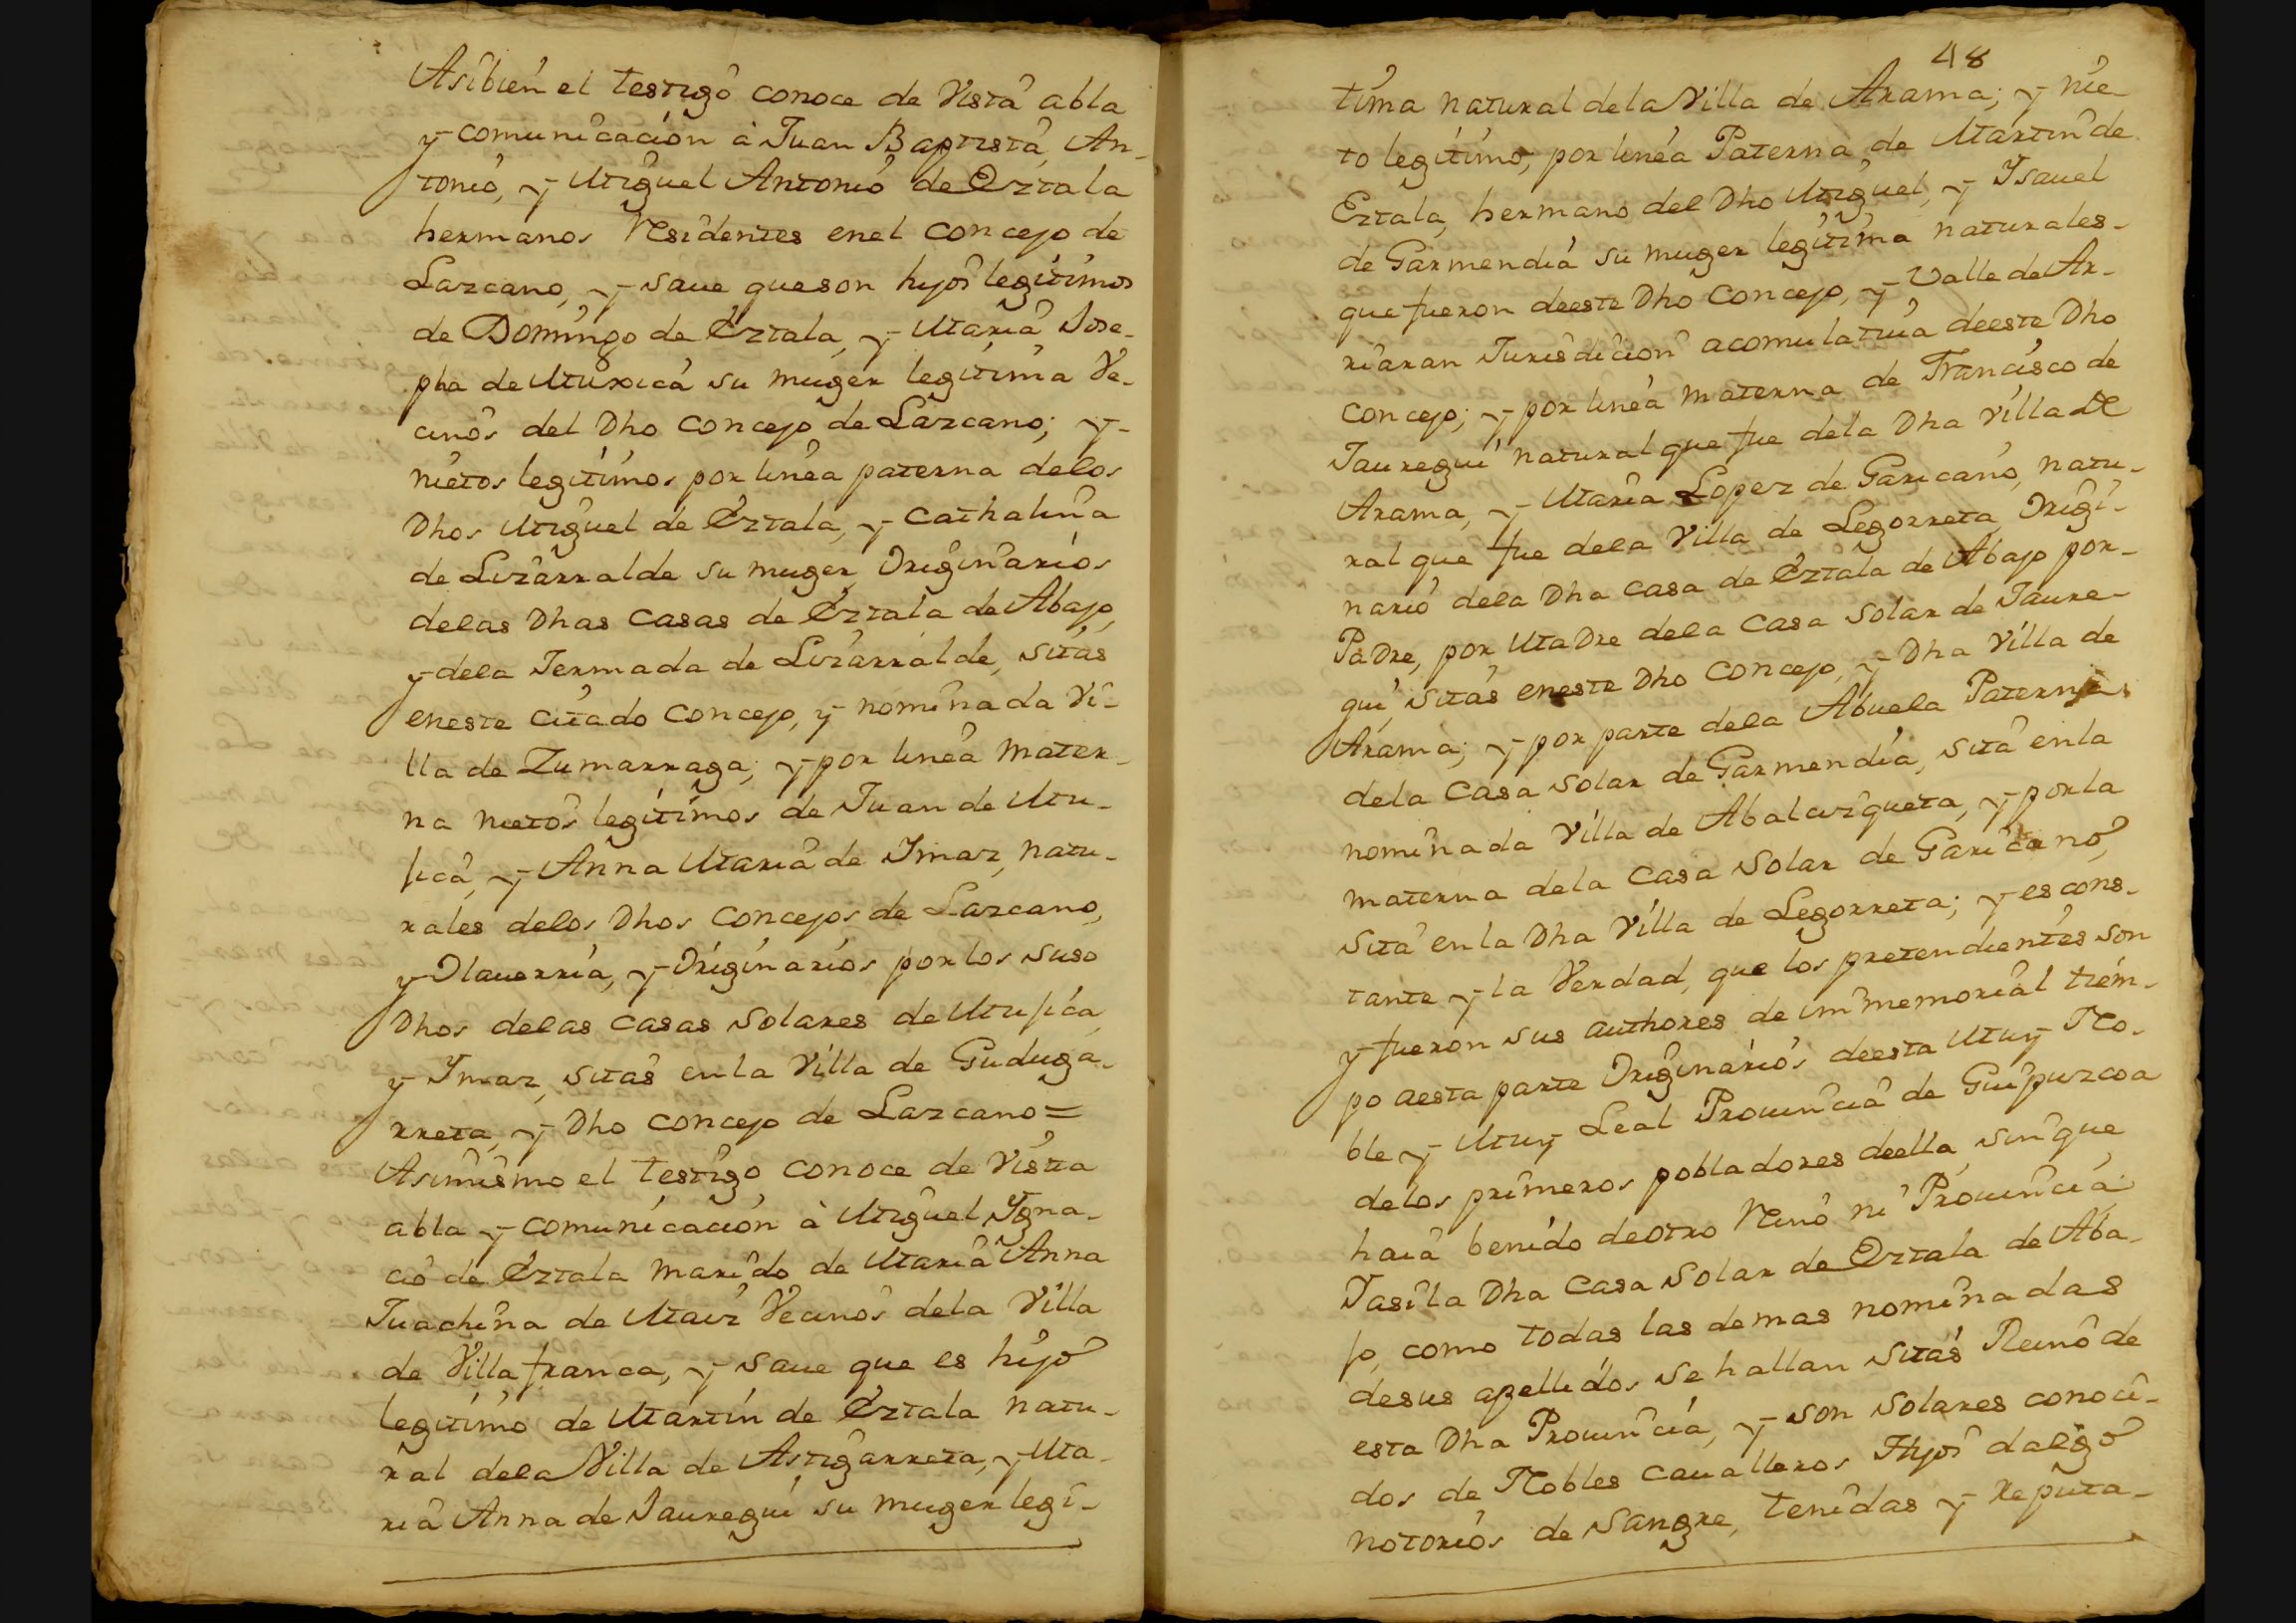 Asibien el testigo conoce de Vista abla
y comunicacion à Juan Baptista, An-
tonio, y Miguel Antonio de Eztala
hermanos Residentes enel concejo de
Lazcano, y saue queson hijos legitimos
de Domingo de Eztala, y Maria Jose-
pha de Muxica su muger legitima Ve-
cinos del Dho concejo de Lazcano; y
nietos legitimos por linea paterna delos
Dhos Miguel de Eztala, y Cathalina
de Lizarralde su muger, Originarios
delas Dhas Casas de Eztala de Abajo,
y dela Jermada de Lizarralde, sitas
eneste citado concejo, y nominada Vi-
lla de Zumarraga; y por linea mater-
na nietos legitimos de Juan de Mu-
jica, y Anna Maria de Imaz, natu-
rales delos Dhos Concejos de Lazcano,
y Olauerria, y Originarios por los suso
Dhos delas casas solares de Mujica,
y Ymaz, sitas en la Villa de Guduga-
rreta, y Dho concejo de Lazcano =
Asimismo el testigo conoce de Vista
abla y comunicacion à Miguel Ygna-
cio de Eztala marido de Maria Anna
Juachina de Maiz Vecinos dela Villa
de Villafranca, y saue que es hijo
legitimo de Martin de Eztala natu-
ral dela Villa de Astigarreta, y Ma-
ria Anna de Jauregui su muger legi-
48
tima natural dela Villa de Arama; y nie
to legitimo, por linea Paterna de Martin de
Eztala, hermano del Dho Miguel, y Ysauel
de Garmendia su muger legitima naturales-
que fueron deeste Dho Concejo, y Valle de Ar-
riaran Jurisdicion acomulatiua deeste Dho
concejo; y por linea materna de Francisco de
Jauregui natural que fue dela Dha Villa de
Arama, y Maria Lopez de Garicano, natu-
ral que fue dela Villa de Legorreta, Origi-
nario dela Dha casa de Eztala de Abajo por-
Padre, por Madre dela Casa solar de Jaure-
gui, sitas eneste Dho Concejo, y Dha Villa de
Arama; y por parte dela Abuela Paterna,
dela Casa solar de Garmendia, sita enla
nominada Villa de Abalcizqueta, y por la
materna dela Casa Solar de Garicano,
Sita en la Dha Villa de Legorreta; y es cons-
tante y la Verdad, que los pretendientes son
y fueron sus authores de immemorial tiem-
po aesta parte Originarios deesta Muy No-
ble y Muy Leal Prouincia de Guipuzcoa
delos primeros pobladores deella, sin que
haia benido deotro Reino ni Prouincia;
Yasi la Dha Casa Solar de Eztala de Aba-
jo, como todas las demas nominadas
desus apellidos se hallan sitas Reino de
esta Dha Prouincia, y son solares conoci-
dos de Nobles caualleros Hijos dalgo
notorios de Sangre, tenidas y Reputa-